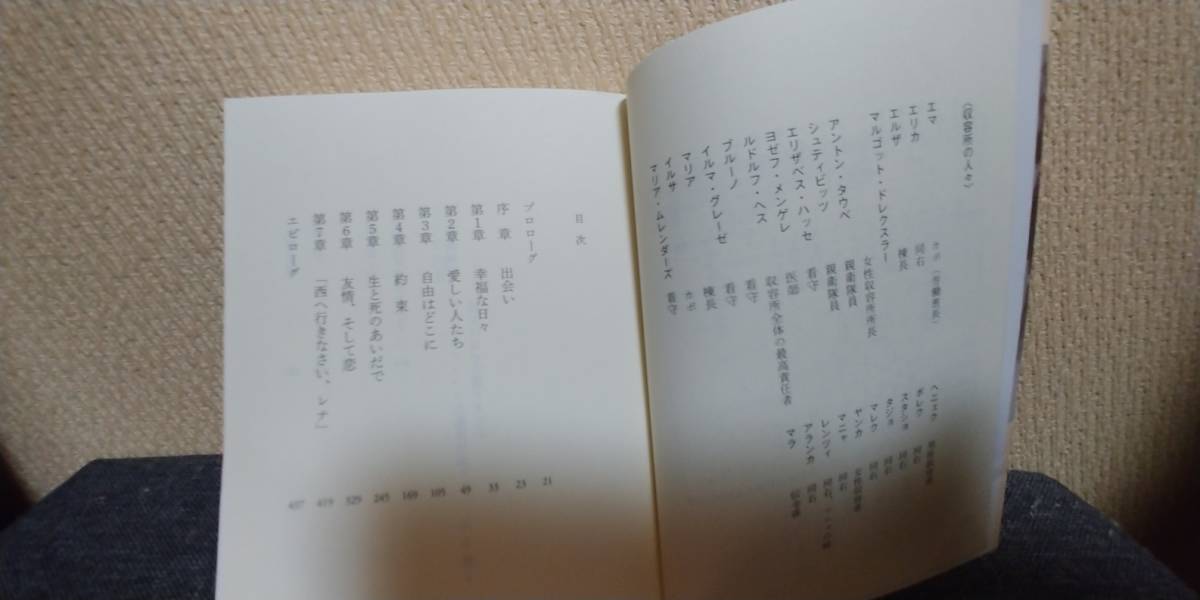 （収容所の人々）
エマ カポ（労働班長）
エリカ 同右
エルザ 棟長
マルゴット・ドレクスラー 女性収容所所長
アントン・タウベ 親衛隊員
シュティビッツ 親衛隊員
エリザベス・ハッセ 看守
ヨゼフ・メンゲレ 医師
ルドルフ・ヘス 収容所全体の最高責任者
ブルーノ 看守
イルマ・グレーゼ 看守
マリア 棟長
イルサ カポ
マリア・ムレンダーズ 看守
ヘニェク
ボレク 同右
スタショ 同右
タジョ 同右
マレク 同右
ヤンカ 女性収容者
マニャ 同右
レンツィ 同右
アランカ 同右
マラ
目次
プロローグ 21
序章 出会い 23
第1章 幸福な日々 33
第2章 愛しい人たち 49
第3章 自由はどこに 105
第4章 約束 169
第5章 生と死のあいだで 245
第6章 友情、そして恋 329
第7章 「西へ行きなさい、レナ」 419
エピローグ 437